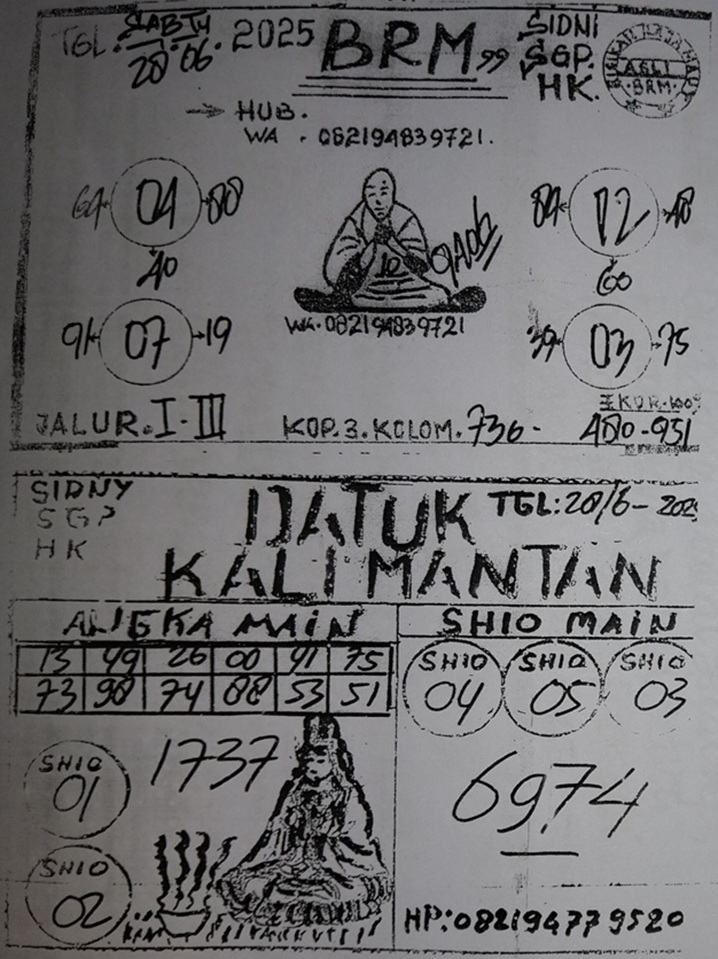 TGL. SABTU 2025 BRM 99 SIDNI
28 06 SGP.
HK.
ASLI
BRM.
→ HUB.
WA . 082194839721.
64 04 80
40
84 12 48
60
10
WA. 082194839721
91 07 19
39 03 75
JALUR. I - III KOP. 3. KOLOM. 736 -
480-951
SIDNY DATUK TGL: 28/6 -
SGP
HK KALIMANTAN
ANGKA MAIN SHIO MAIN
13 49 26 00 41 75
73 98 74 88 53 51
SHIO 04 SHIO 05 SHIO 03
SHIO 01 1737
6974
SHIO 02
HP: 082194779520